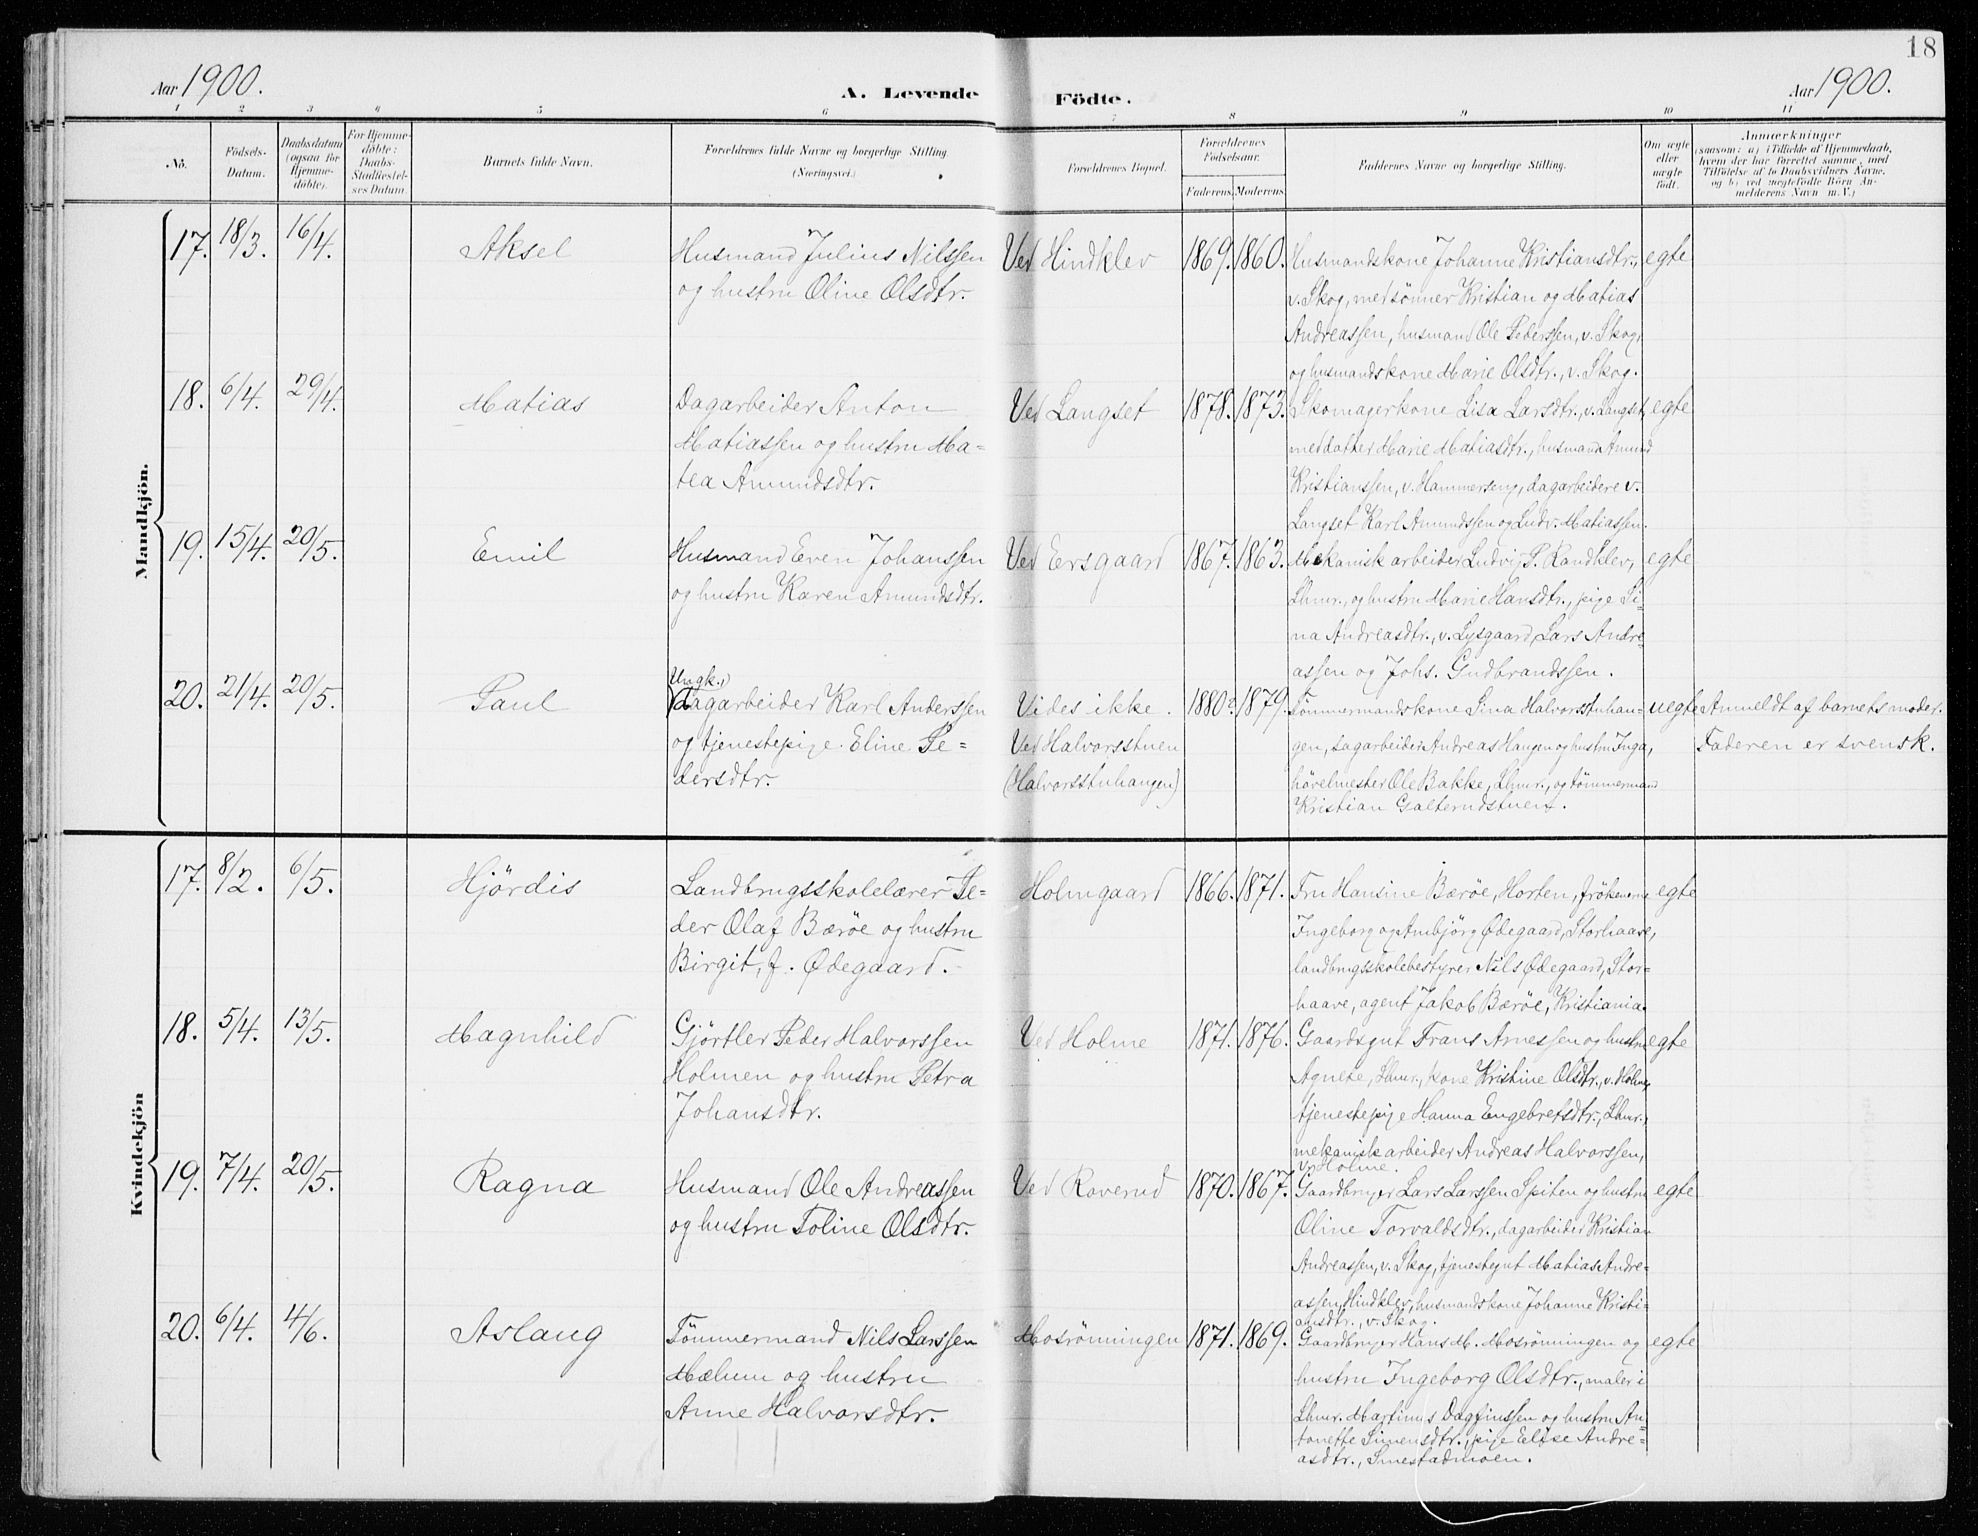 18
Aar 1900.
A. Levende
Födte.
Aar 1900.
1 2 3 4 5 6 7 8 9 10 11
No.
Födsels-
Datum.
Daabsdatum
(ogsaa for
Hjemme-
döbte).
For Hjemme-
döbte:
Daabs-
Stadfæstel-
ses Datum
Barnets fulde Navn.
Forældrenes fulde Navne og borgerlige Stilling.
(Næringsvei.)
Forældrenes Bopæl.
Forældrenes
Födselsaar.
Faderens.
Moderens.
Faddernes Navne og borgerlige Stilling.
Om ægte
eller
uægte
födt.
Anmærkninger
(saasom: a) i Tilfælde af Hjemmedaab,
hvem der har forrettet samme, med
Tilföielse af to Daabsvidners Navne,
og b) ved uægtefödte Börn An-
melderens Navn m. V.)
Mandkjön.
17. 18/3. 16/4. Aksel
Husmand Julius Nilssen
og hustru Oline Olsdtr.
Ved Hindklev 1869. 1860.
Husmandskone Johanne Kristiansdtr.,
v. Skog, med sønner Kristian og Matias
Andreassen, husmand Ole Pederssen, v. Skog,
og husmandskone Marie Olsdtr., v. Skog.
egte
18. 6/4. 29/4. Matias
Dagarbeider Anton
Matiassen og hustru Ma-
tea Amundsdtr.
Ved Langset 1878. 1873.
Skomagerkone Lisa Larsdtr., v. Langset,
med datter Marie Matiasdtr., husmand Amund
Kristianssen, v. Hammerseng, dagarbeidere v.
Langset Karl Amundssen og Ludv. Matiassen.
egte
19. 15/4. 20/5. Emil
Husmand Even Johanssen
og hustru Karen Amundsdtr.
Ved Ersgaard 1867. 1863.
Mekanisk arbeider Ludvig P. Randklev,
Lhmr., og hustru Marie Hansdtr., pige Si-
na Andreasdtr., v. Lysgaard, Lars Andre-
assen og Johs. Gudbrandssen.
egte
20. 21/4. 20/5. Paul
Ungk.,
Dagarbeider Karl Anderssen
og tjenestepige Eline Pe-
dersdtr.
Vides ikke.
Ved Halvorsstuen
(Halvorsstuhaugen)
1880? 1879.
Tömmermandskone Sina Halvorsstuhau-
gen, dagarbeider Andreas Haugen og hustru Inga,
hövelmester Ole Bakke, Lhmr., og tömmermand
Kristian Galterudstuen.
uegte
Anmeldt af barnets moder.
Faderen er svensk.
Kvindekjön
17. 8/2. 6/5. Hjördis
Landbrugsskolelærer Pe-
der Olaf Bæröe og hustru
Birgit, f. Ødegaard.
Holmgaard 1866. 1871.
Fru Hansine Bæröe, Horten, frökenerne
Ingeborg og Ambjörg Ødegaard, Storhaave,
landbrugsskolebestyrer Nils Ødegaard, Stor-
haave, agent Jakob Bæröe, Kristiania.
egte
18. 5/4. 13/5. Magnhild
Gjörtler Peder Halvorssen
Holmen og hustru Petra
Johansdtr.
Ved Holme 1871. 1876.
Gaardsgut Frans Arnessen og hustru
Agnete, Lhmr., kone Kristine Olsdtr., v. Holme,
tjenestepige Hanna Engebretsdtr., Lhmr.,
mekanisk arbeider Andreas Halvorssen,
v. Holme.
egte
19. 7/4. 20/5. Ragna
Husmand Ole Andreassen
og hustru Toline Olsdtr.
Ved Roverud 1870. 1867.
Gaardbruger Lars Larssen Spiten og hustru
Oline Torvaldsdtr., dagarbeider Kristian
Andreassen, v. Skog, tjenestegut Matias Andre-
assen, Hindklev, husmandskone Johanne Kristi-
ansdtr., v. Skog.
egte
20. 6/4. 4/6. Aslaug
Tömmermand Nils Larssen
Mælum og hustru
Anne Halvorsdtr.
Mosrönningen 1871. 1869.
Gaardbruger Hans M. Mosrönningen og
hustru Ingeborg Olsdtr., maler i
Lhmr. Martinus Dagfinssen og hustru An-
tonette Simensdtr., pige Elise Andre-
asdtr., Smestadmoen.
egte